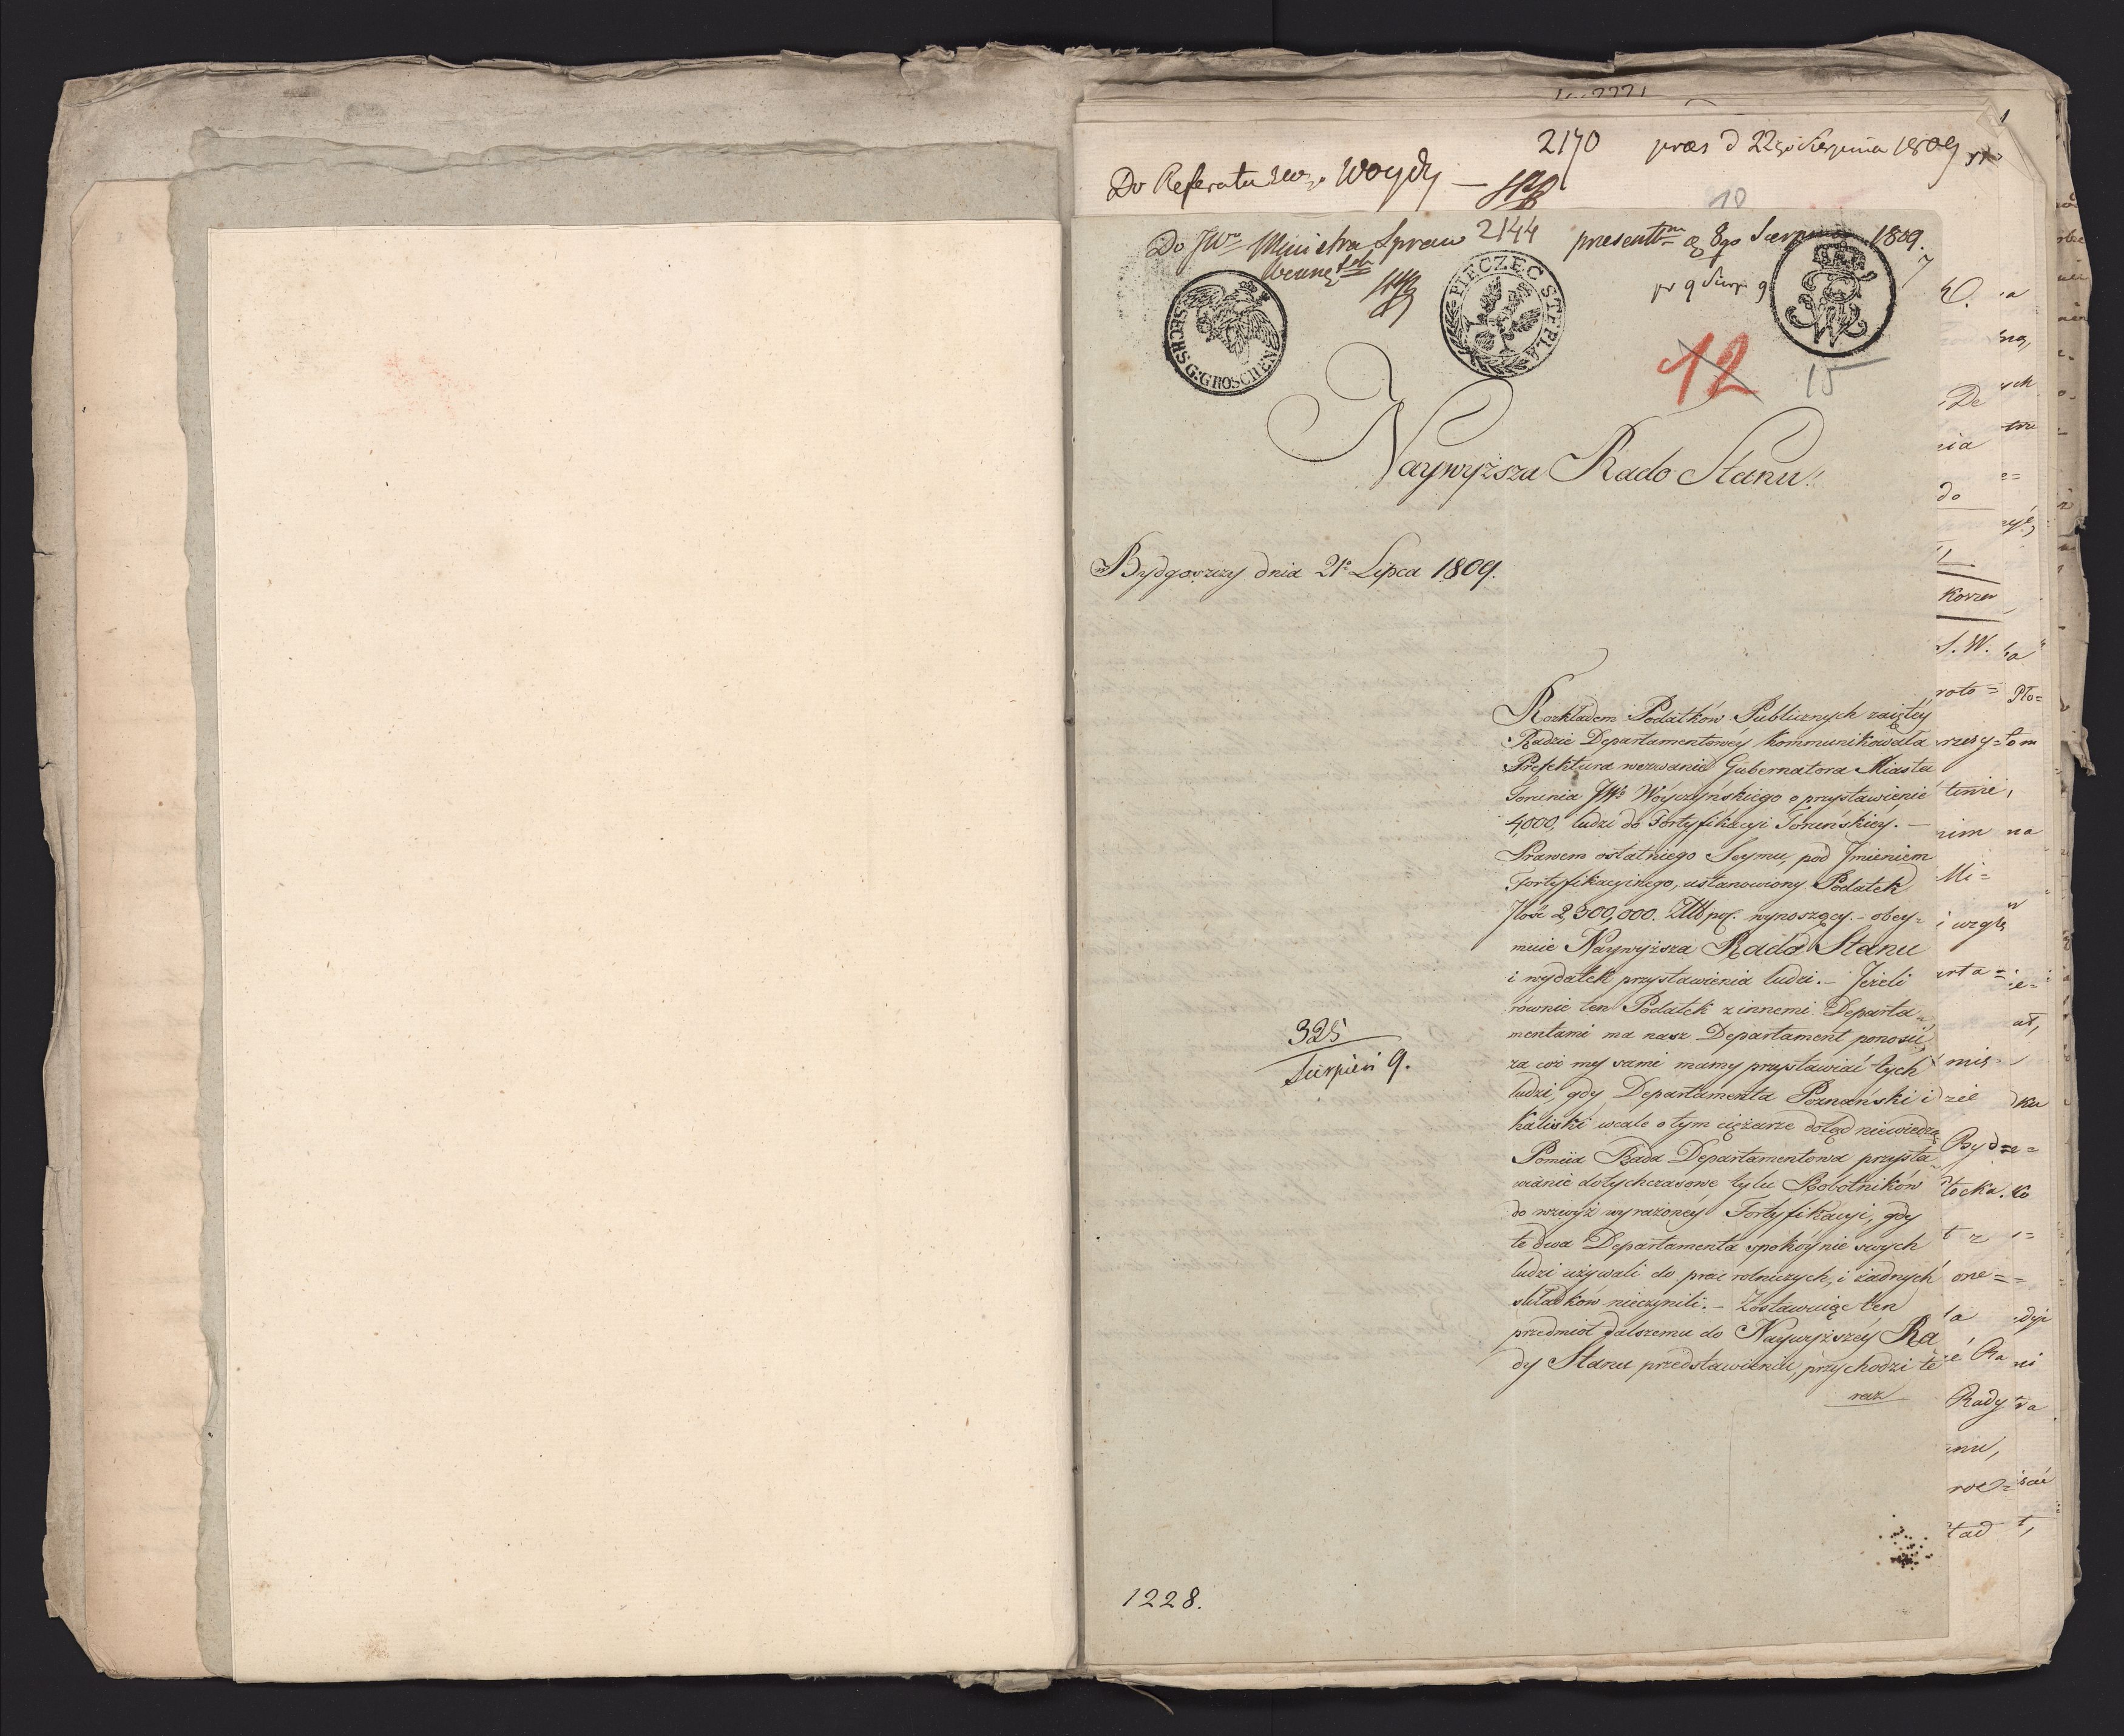 1
2170 præs d 22go Sierpnia 1809
Do Referatu Woydy
10
Do JWo Ministra Spraw 2144 presentm d 8go Sierpnia 1809.
7
pr 9 Sierp. 9
SECHS G: GROSCHEN
PIECZĘC STEPLA
12 15
Naywyższa Rado Stanu!
w Bydgoszczy dnia 21o Lipca 1809.
Rozkładem Podatków Publicznych zaiętéy
Radzie Departamentowéy kommunikowała
Prefektura wezwanie Gubernatora Miasta
Torunia JWo Woyczyńskiego o przystawienie
4,000, ludzi do Fortyfikacyi Toruńskiéy. —
Prawem ostatniego Seymu, pod Jmieniem
Fortyfikacyinego, ustanowiony Podatek
Jlość 2,300,000. Złł pol. wynoszący. - obey-
muie Naywyższa Rada Stanu
i wydatek przystawienia ludzi. - Jeżeli
równie ten Podatek z innemi Departa-
mentami ma nasz Departament ponosić,
za coż my sami mamy przystawiać tych
ludzi, gdy Departamenta Poznański i
Kaliski wcale o tym ciężarze dotąd niewiedzą
Pomiia Rada Departamentowa przysta-
wianie dotychczasowe tylu Robotników
do wzwyż wyrażonéy Fortyfikacyi, gdy
te dwa Departamenta spokoynie swych
ludzi używali do prac rolniczych, i żadnych
składków nieczynili. - Zostawuiąc ten
przedmiot dalszemu do Naywyższéy Ra
dy Stanu przedstawieniu, przychodzi te
raz
325
Sierpień 9.
1228.
De
nia
do
Korzen
S. W.
roto=
rzesy=
nim
Mi=
i wzglę
arta=
mis
Byd
tocka.
one=
Ra
Rady
Pło=
tom
na